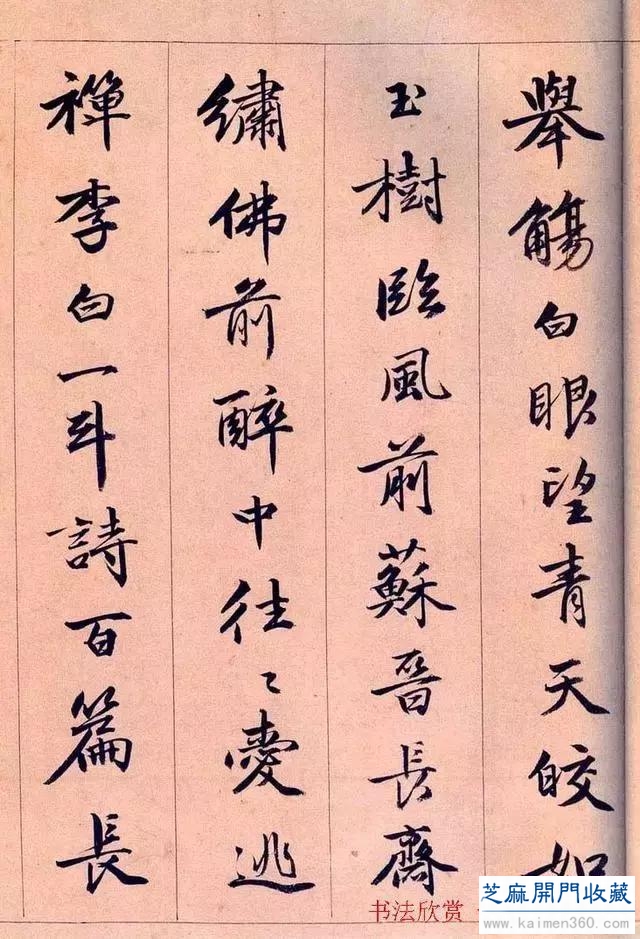 舉觴白眼望青天皎如
玉樹臨風前蘇晉長齋
繡佛前醉中往〻愛逃
禪李白一斗詩百篇長
书法欣赏
芝麻開門收藏
www.kaimen360.com